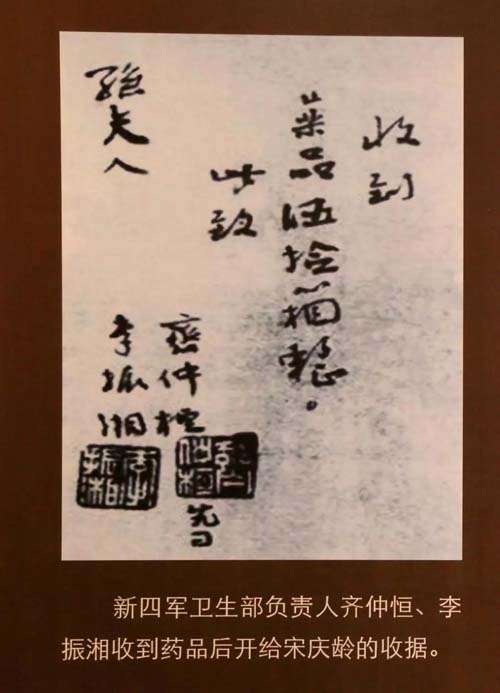 收到
藥品伍拾箱整。
此致
孫夫人
齊仲桓
李振湘
新四军卫生部负责人齐仲恒、李
振湘收到药品后开给宋庆龄的收据。